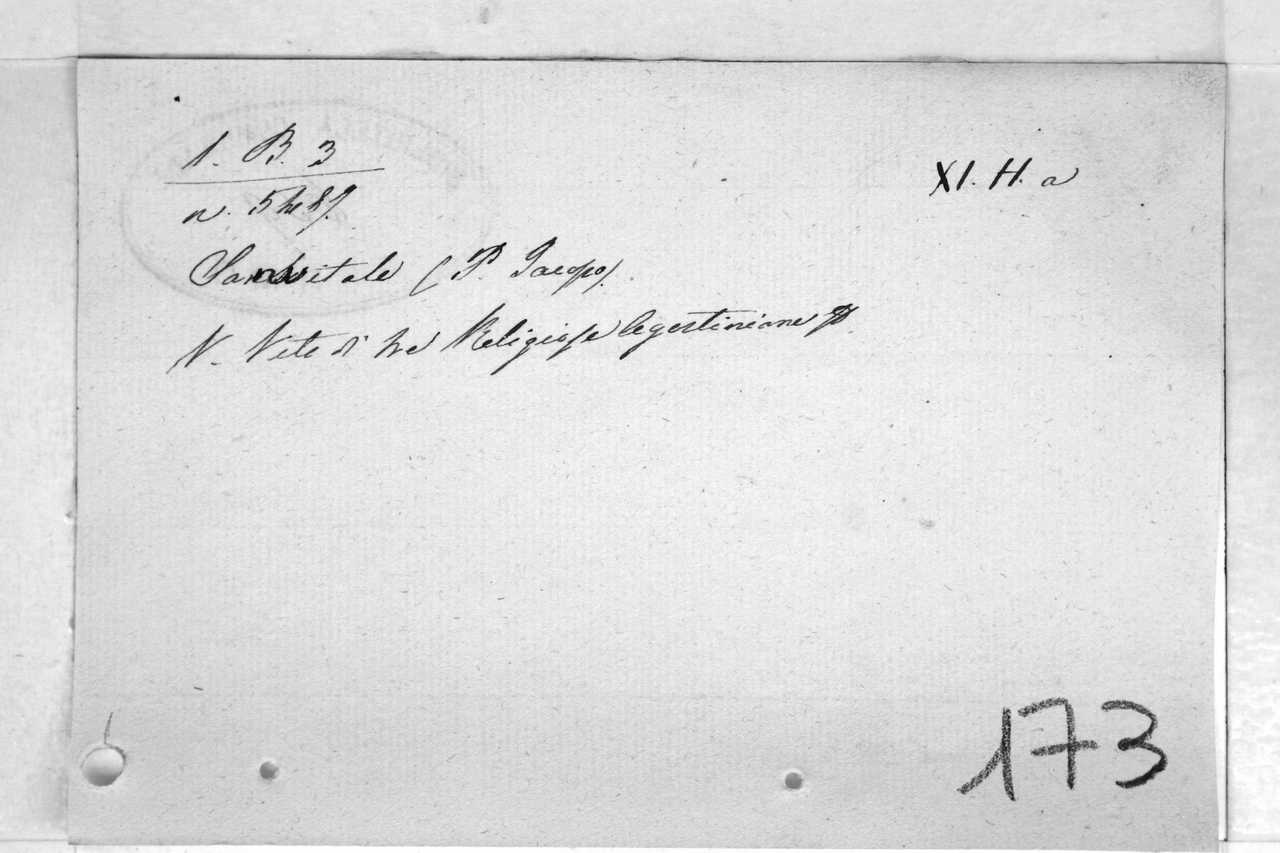 1. B. 3
XI. H. a
n. 5487.
Sanvitale (P. Jacopo).
V. Vite di tre Religiose Agostiniane
173